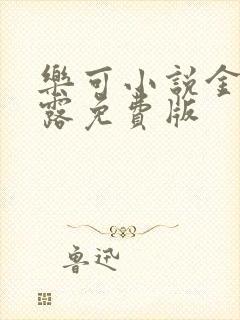 樂可小說金
露免費版
魯迅